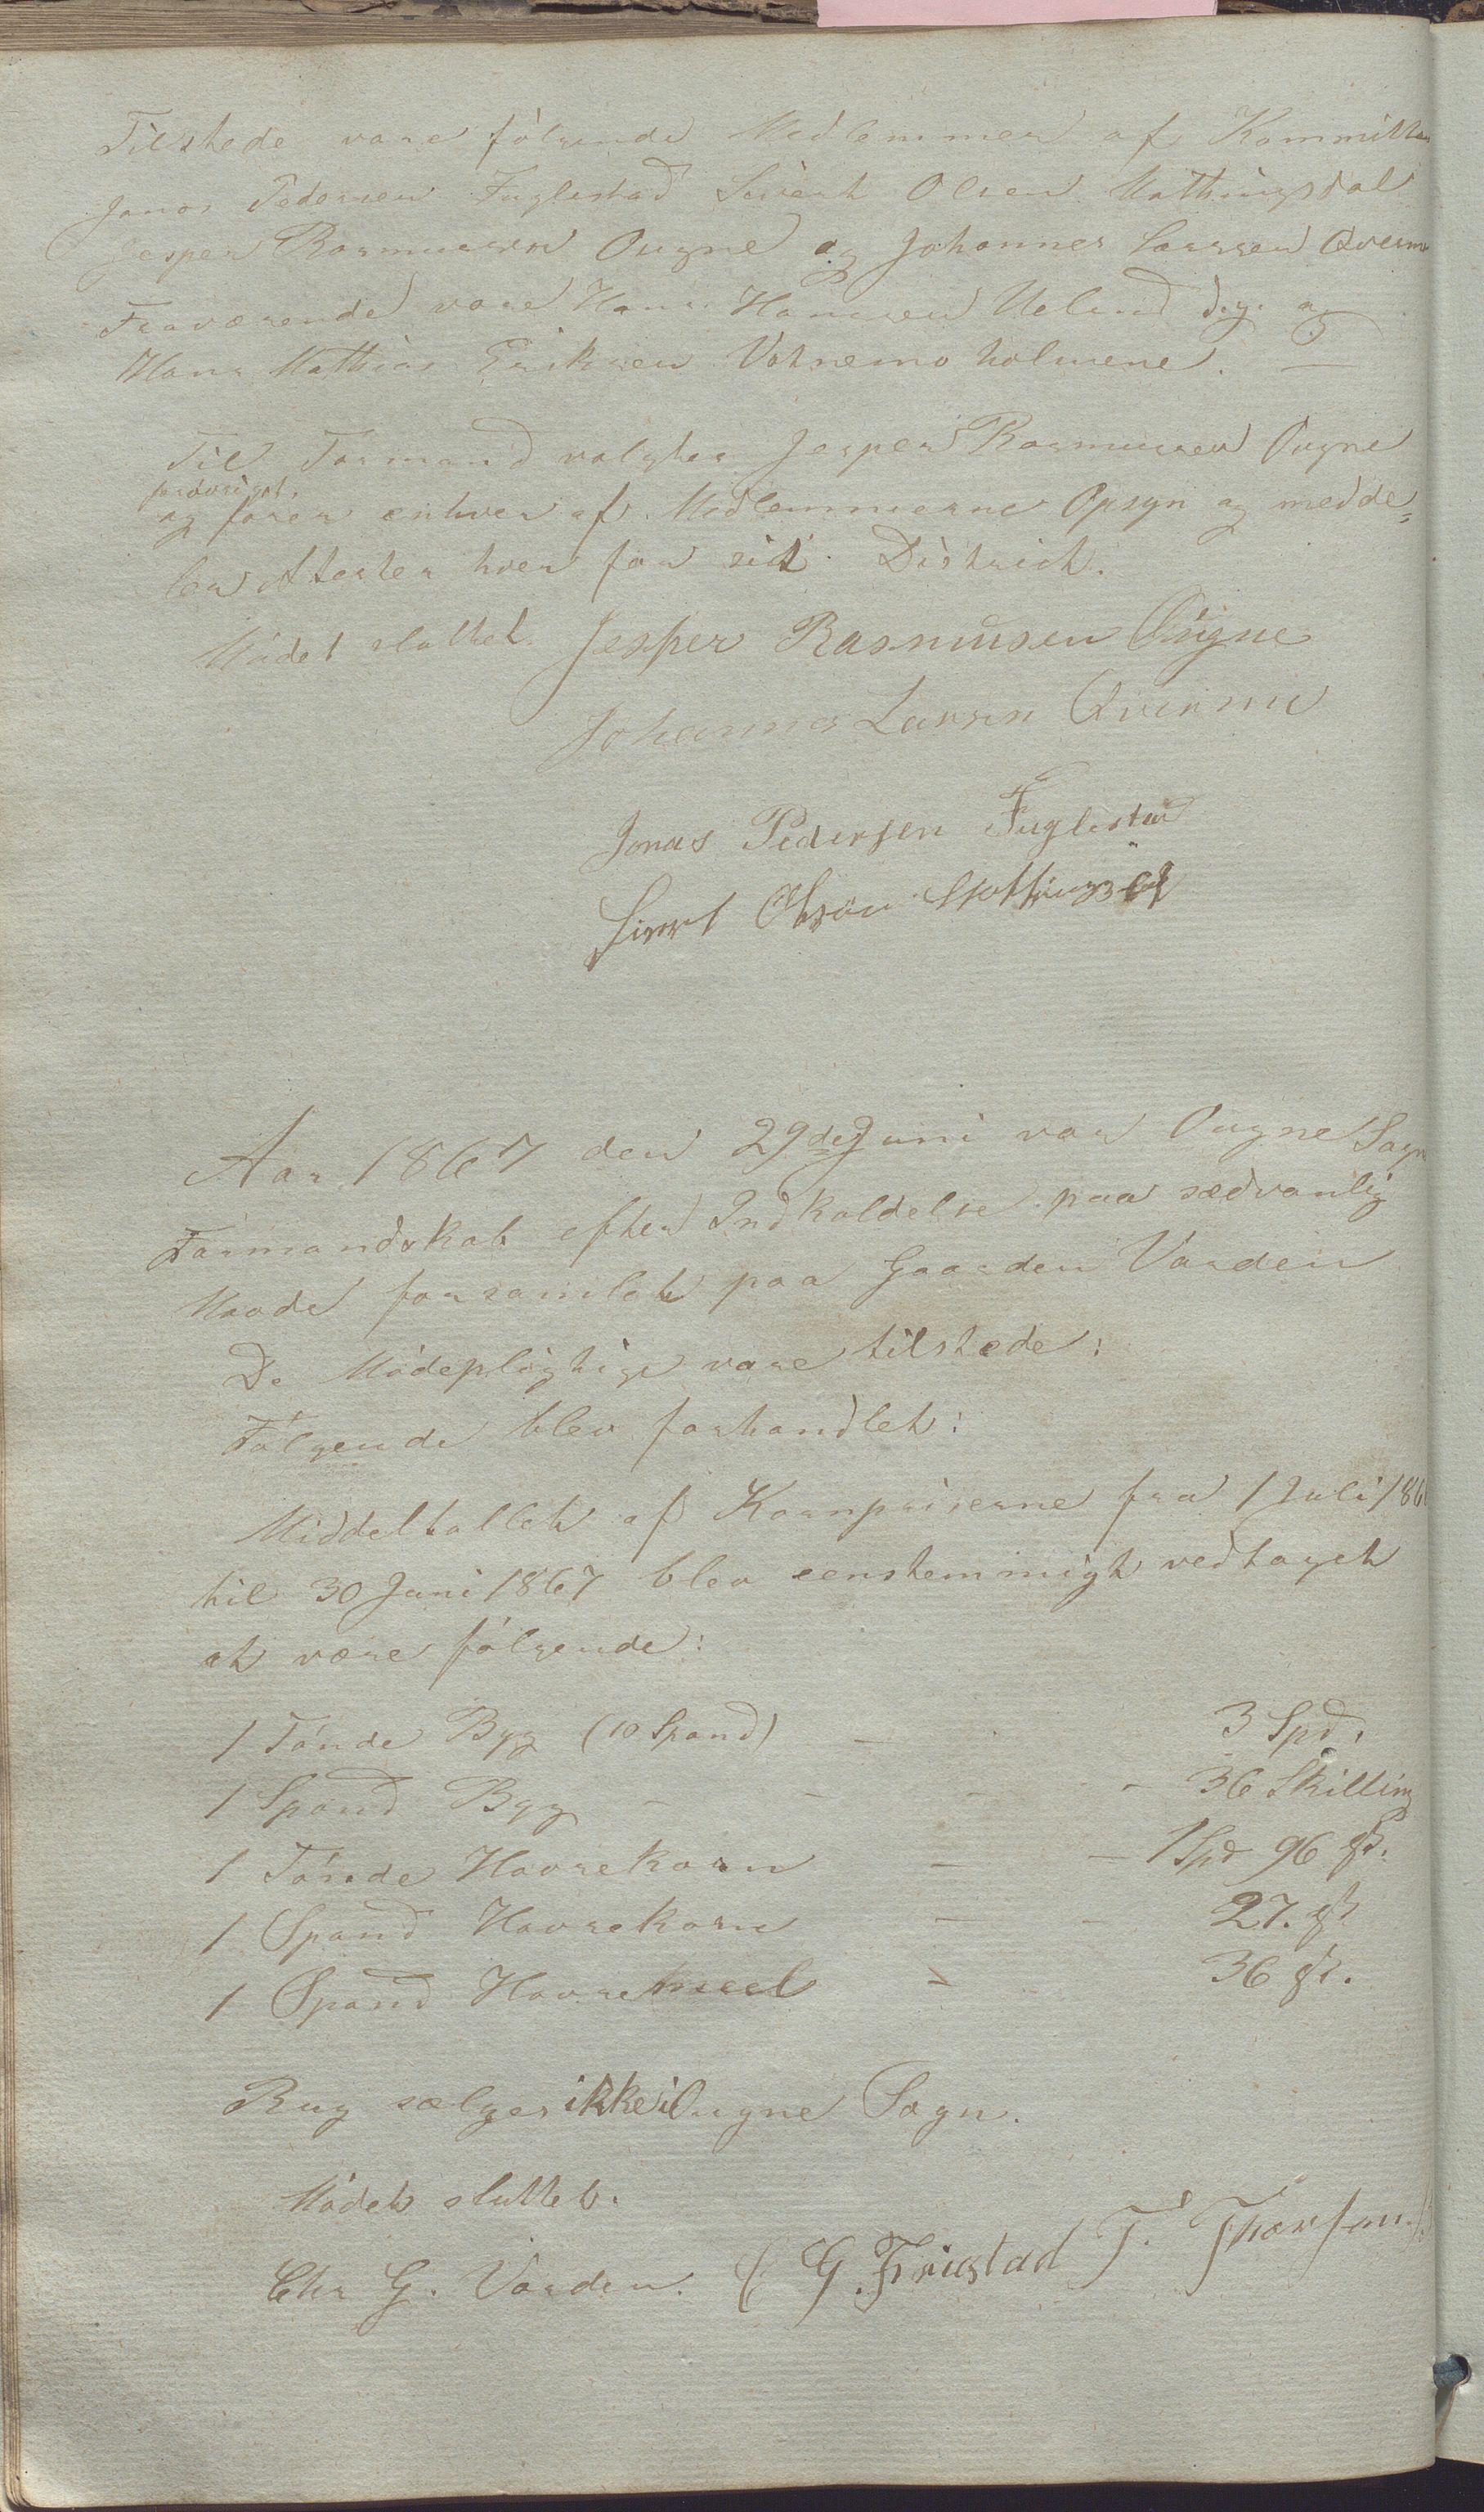 Tilstede vare følgende Medlemmer af Kommitten
Jonas Pedersen Fuglestad Sivert Olsen Mathingsdal
Jesper Rasmussen Ougne og Johannes Larssen Qverm
Fraværende vare Hans Hansen Ueland d.y. og
Hans Mathias Eriksen Vatnemo holmene. —
Til Formand valgtes Jesper Rasmussen Ougne
forøvrigt
og fører enhver af Medlemmerne Opsyn og medde=
ler Attester hver for sit District.
Mødet sluttet Jesper Rasmusen Ougne
Johannes Larsen Qvermu
Jonas Pedersen Fuglestad
Sivert Olsen
Aar 1867 den 29de Juni var Ougne Sogn
Formandskab efter Indkaldelse paa sædvanlig
Maade forsamlet paa Gaarden Varden
De Mødepligtige vare tilstede:
Følgende blev forhandlet:
Middeltallet af Kornpriserne fra 1 Juli 186
til 30 Juni 1867 blev eenstemmigt vedtaget
at være følgende:
1 Tønde Byg (10 Spand) — 3 Spd.
1 Spand Byg - - - - 36 Skilling
1 Tønde Havrekorn — — 1 Spd 96 ß.
1 Spand Havrekorn — - 27. ß
1 Spand Havremeel - 36 ß.
Rug sælges ikke i Ougne Sogn.
Mødet sluttet.
Chr G. Varden. G. Friestad T. Thorsen.